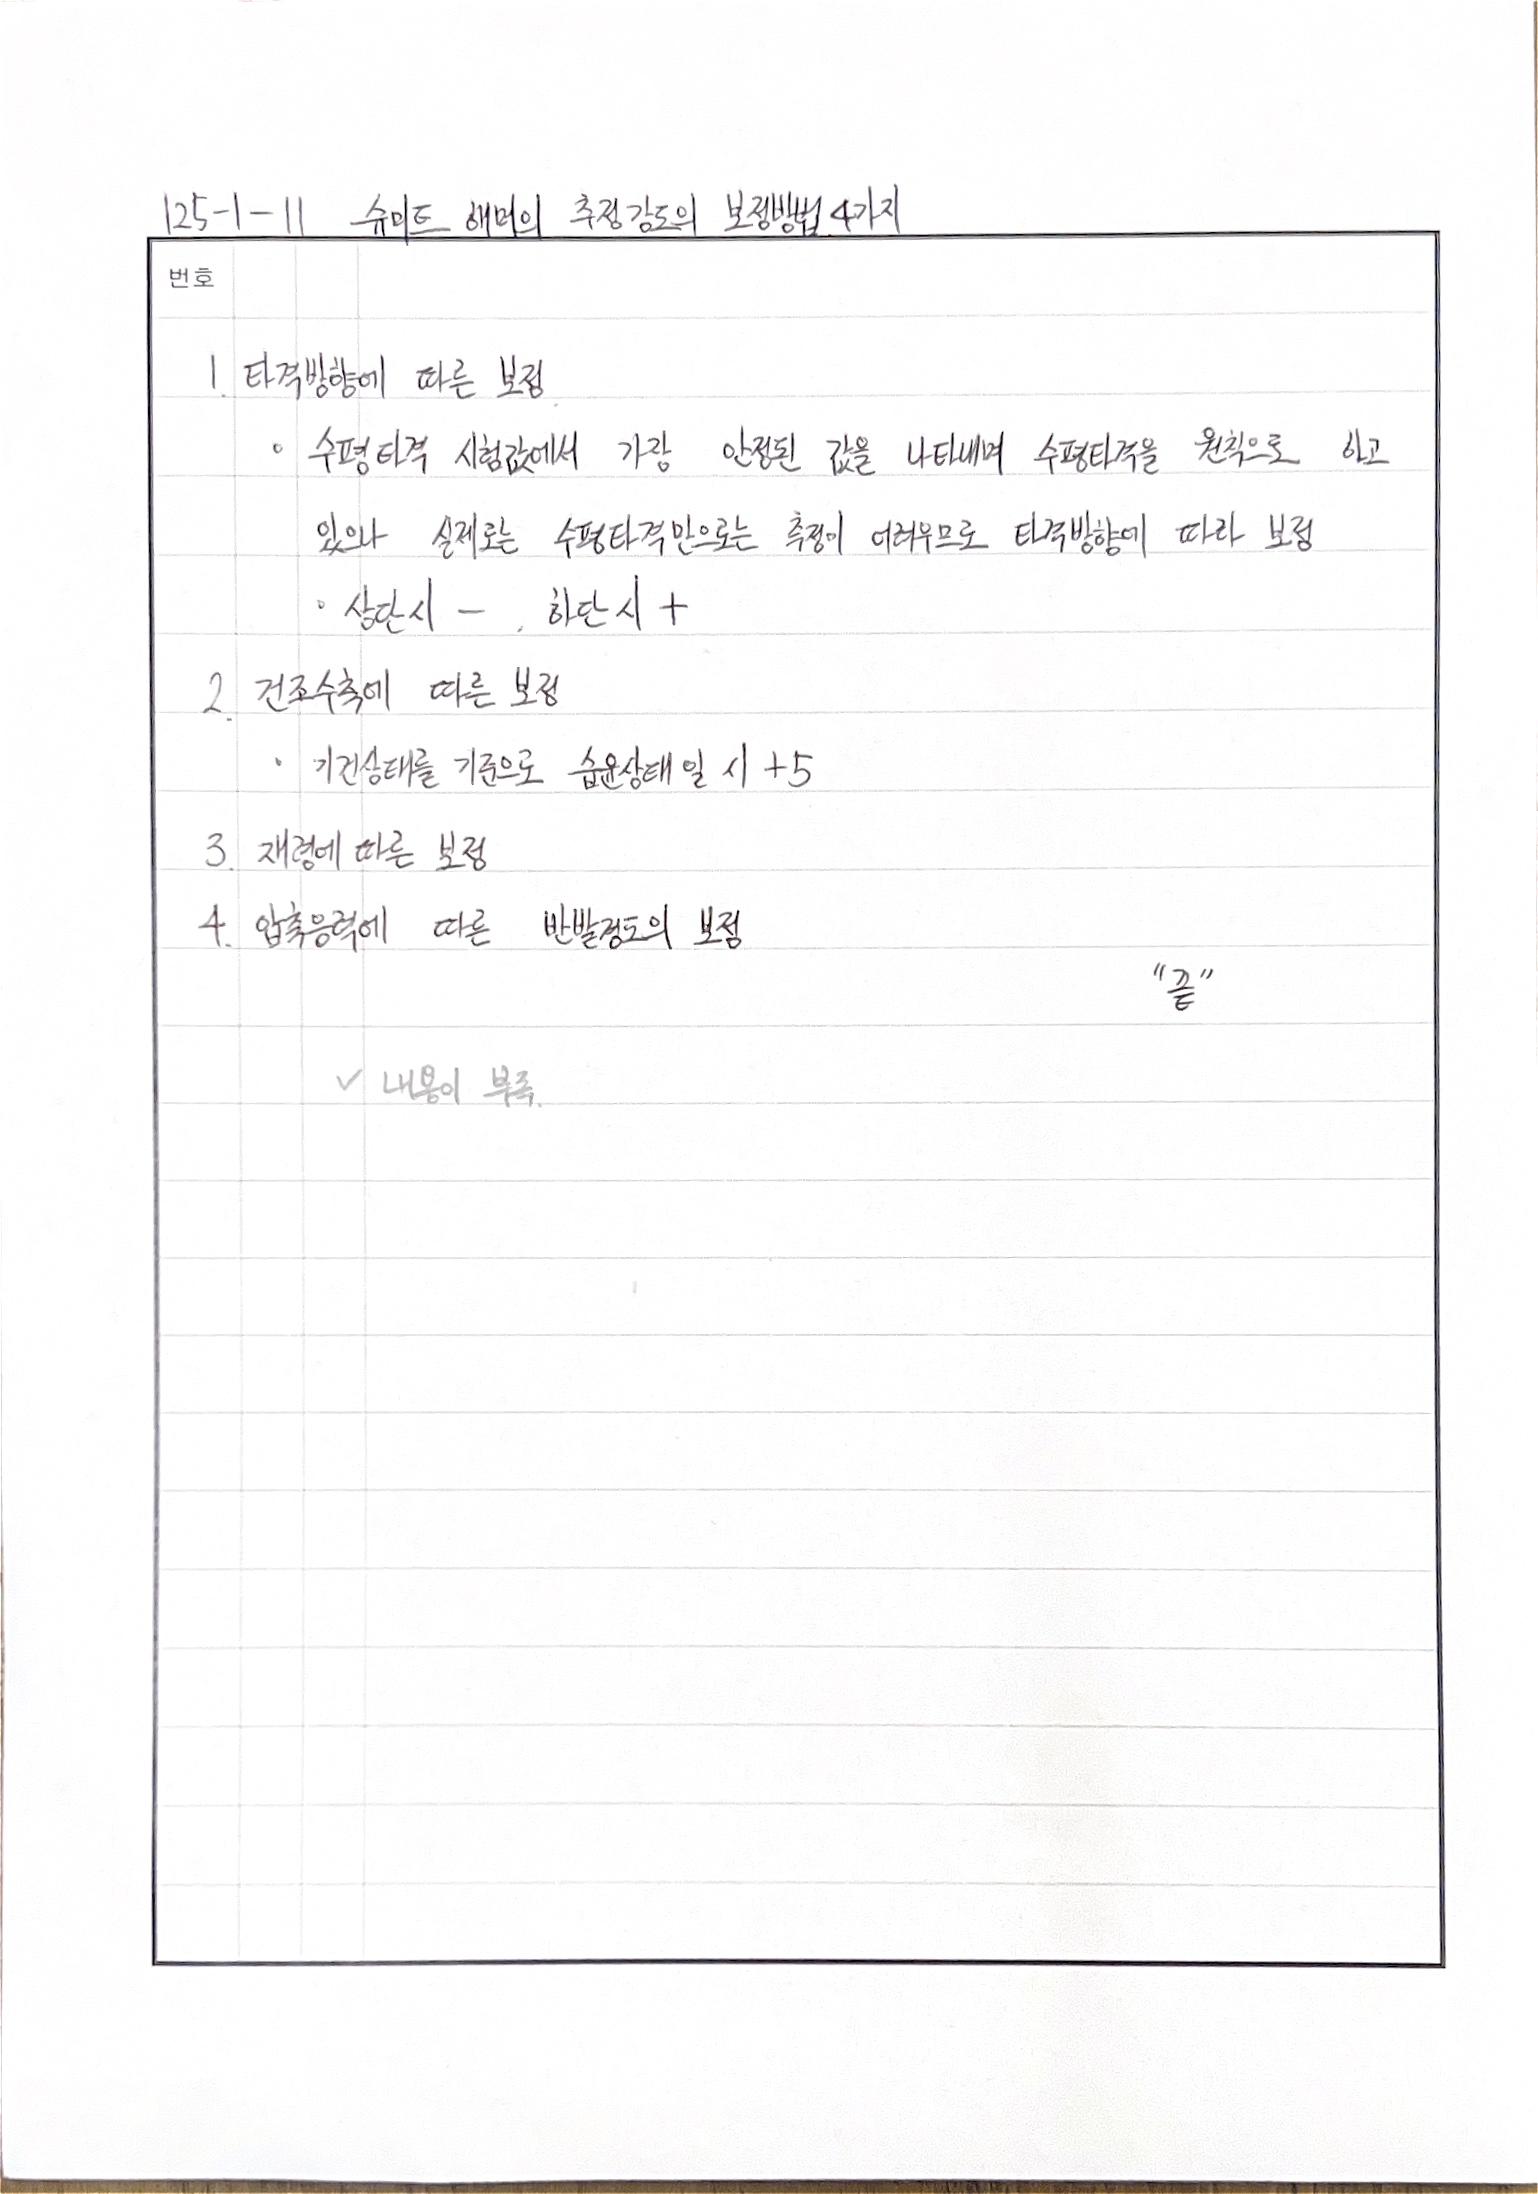 125-1-11 슈미트 해머의 추정강도의 보정방법 4가지
번호
1. 타격방향에 따른 보정
• 수평타격 시험값에서 가장 안정된 값을 나타내며 수평타격을 원칙으로 하고
있으나 실제로는 수평타격만으로는 추정이 어려우므로 타격방향에 따라 보정
• 상단시 - , 하단시 +
2. 건조수축에 따른 보정
• 기건상태를 기준으로 습윤상태일 시 +5
3. 재령에 따른 보정
4. 압축응력에 따른 반발경도의 보정
"끝"
✓ 내용이 부족.